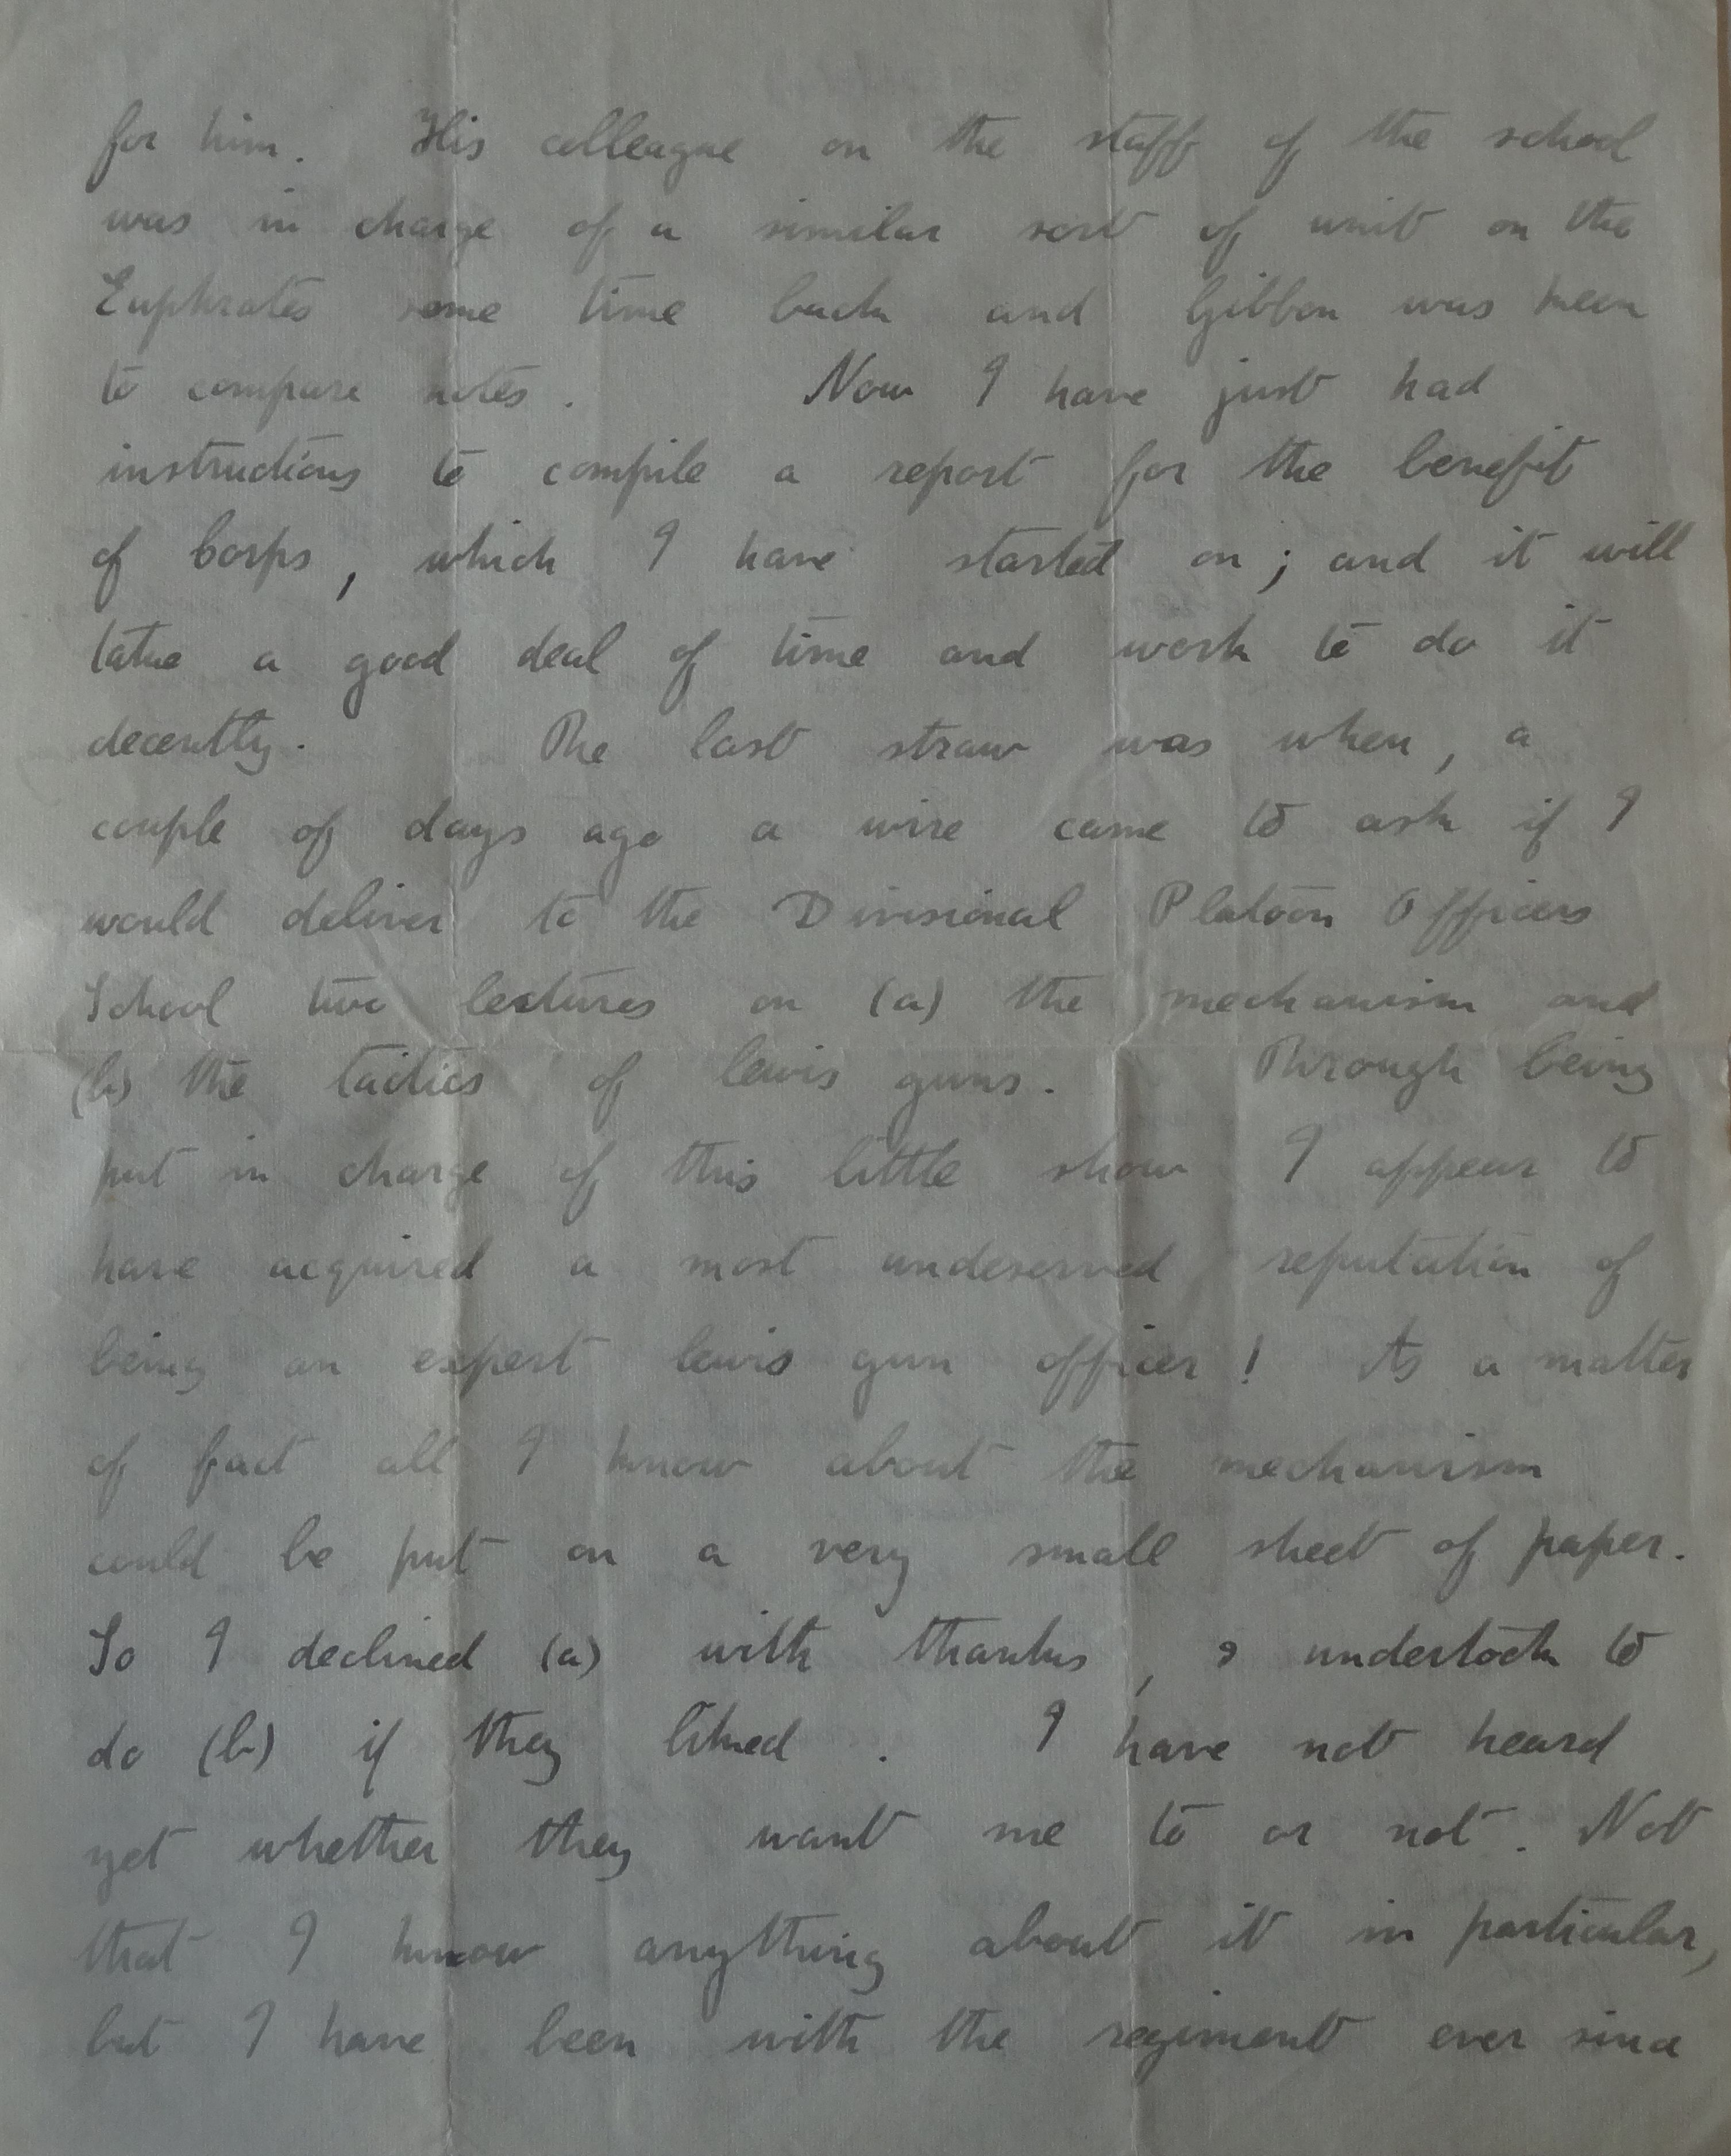 for him. His colleague on the staff of the school
was in charge of a similar sort of unit on the
Euphrates some time back and Gibbon was keen
to compare notes. Now I have just had
instructions to compile a report for the benefit
of Corps, which I have started on; and it will
take a good deal of time and work to do it
decently. The last straw was when, a
couple of days ago a wire came to ask if I
would deliver to the Divisional Platoon Officers
School two lectures on (a) the mechanism and
(b) the tactics of lewis guns. Through being
put in charge of this little show I appear to
have acquired a most undeserved reputation of
being an expert lewis gun officer! As a matter
of fact all I know about the mechanism
could be put on a very small sheet of paper.
So I declined (a) with thanks, & undertook to
do (b) if they liked. I have not heard
yet whether they want me to or not. Not
that I know anything about it in particular,
but I have been with the regiment ever since